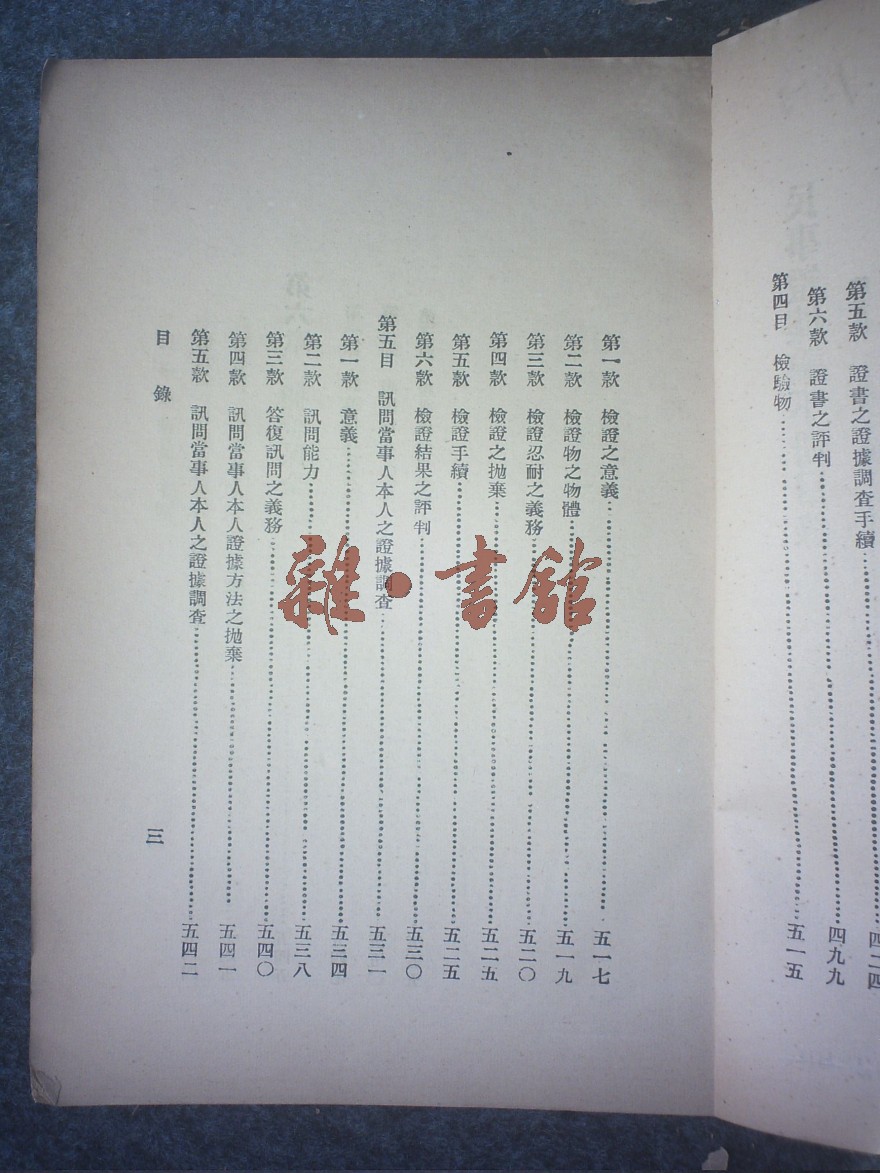 第五款 證書之證據調查手續
第六款 證書之評判 四九九
第四目 檢驗物 五一五
第一款 檢證之意義 五一七
第二款 檢證物之物體 五一九
第三款 檢證忍耐之義務 五二〇
第四款 檢證之拋棄 五二五
第五款 檢證手續 五二五
第六款 檢證結果之評判 五三〇
第五目 訊問當事人本人之證據調查 五三一
第一款 意義 五三四
第二款 訊問能力 五三八
第三款 答復訊問之義務 五四〇
第四款 訊問當事人本人證據方法之拋棄 五四一
第五款 訊問當事人本人之證據調查 五四二
目錄 三
雜·書館